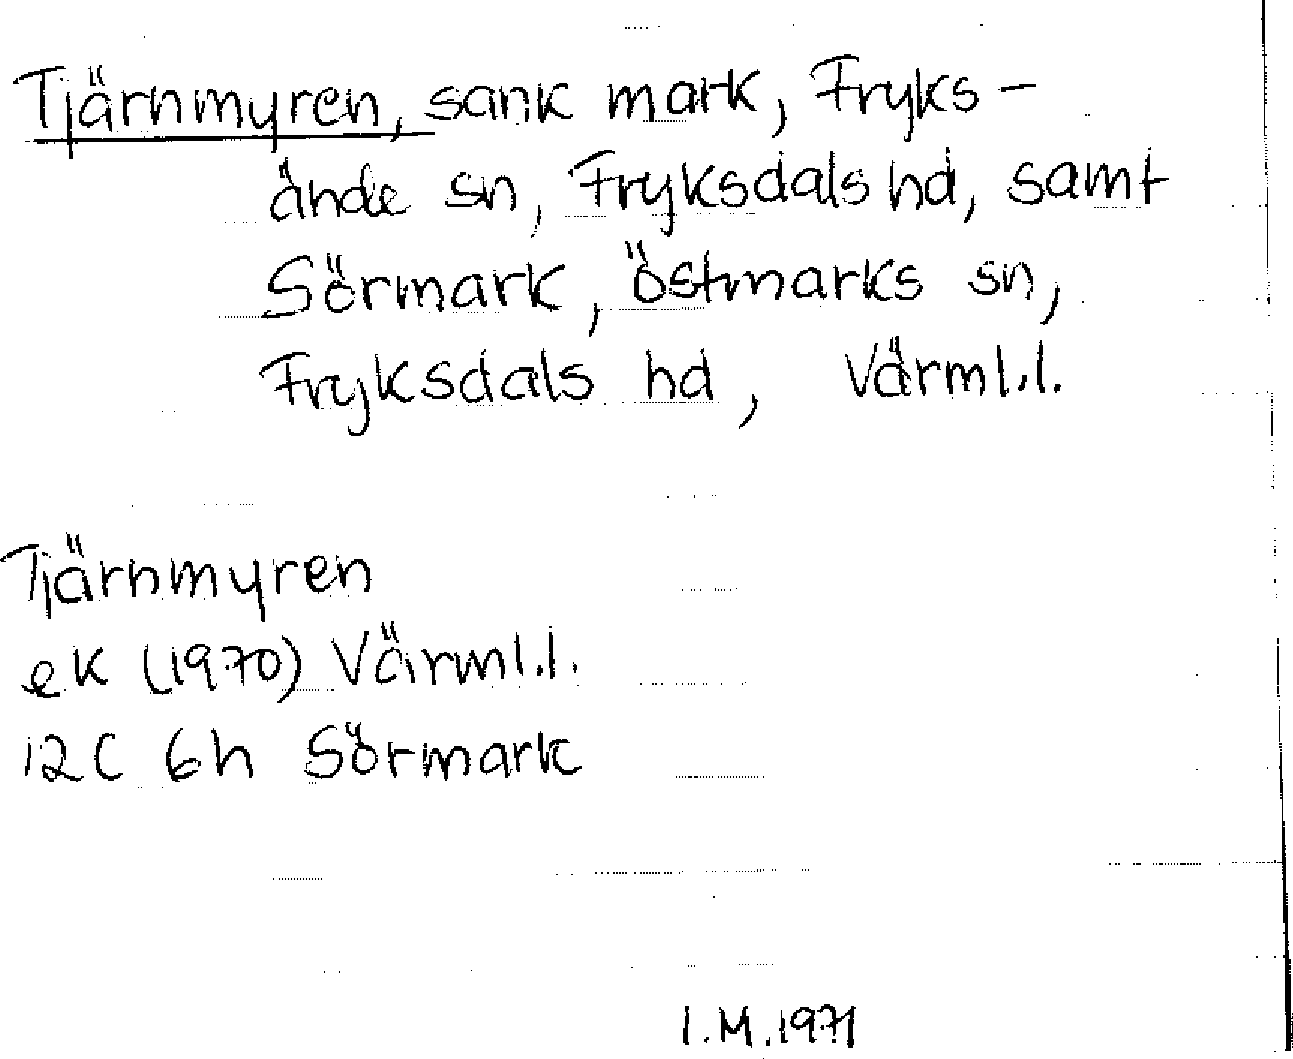 Tjärnmyren, sank mark, Fryks-
ände sn, Fryksdals hd, samt
Sörmark, Östmarks sn,
Fryksdals hd, Värml.l.
Tjärnmyren
ek (1970) Värml.l.
12C 6h Sörmark
I.M.1971